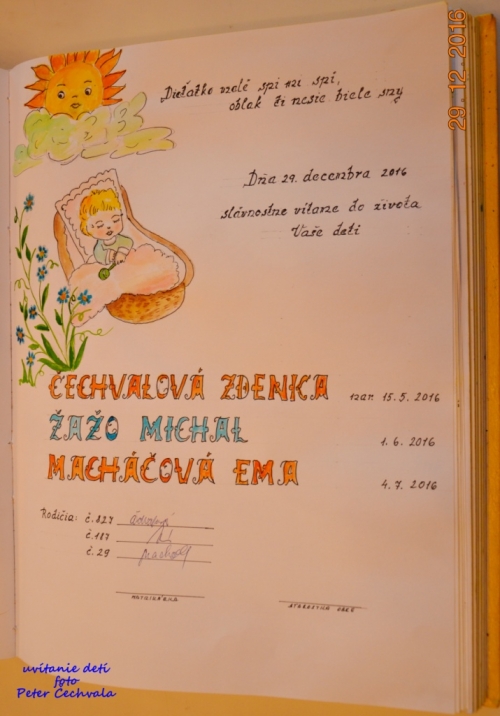 29.12.2016
Dieťatko malé spi mi spi,
oblak ti nesie biele sny
Dňa 29. decembra 2016
slávnostne vítame do života
Vaše deti
CECHVALOVÁ ZDENKA nar. 15.5.2016
ŽAŽO MICHAL 1.6.2016
MACHÁČOVÁ EMA 4.7.2016
Rodičia: č.827
č.187
č.29
MATRIKÁRKA
STAROSTKA OBCE
uvítanie detí
foto
Peter Cechvala